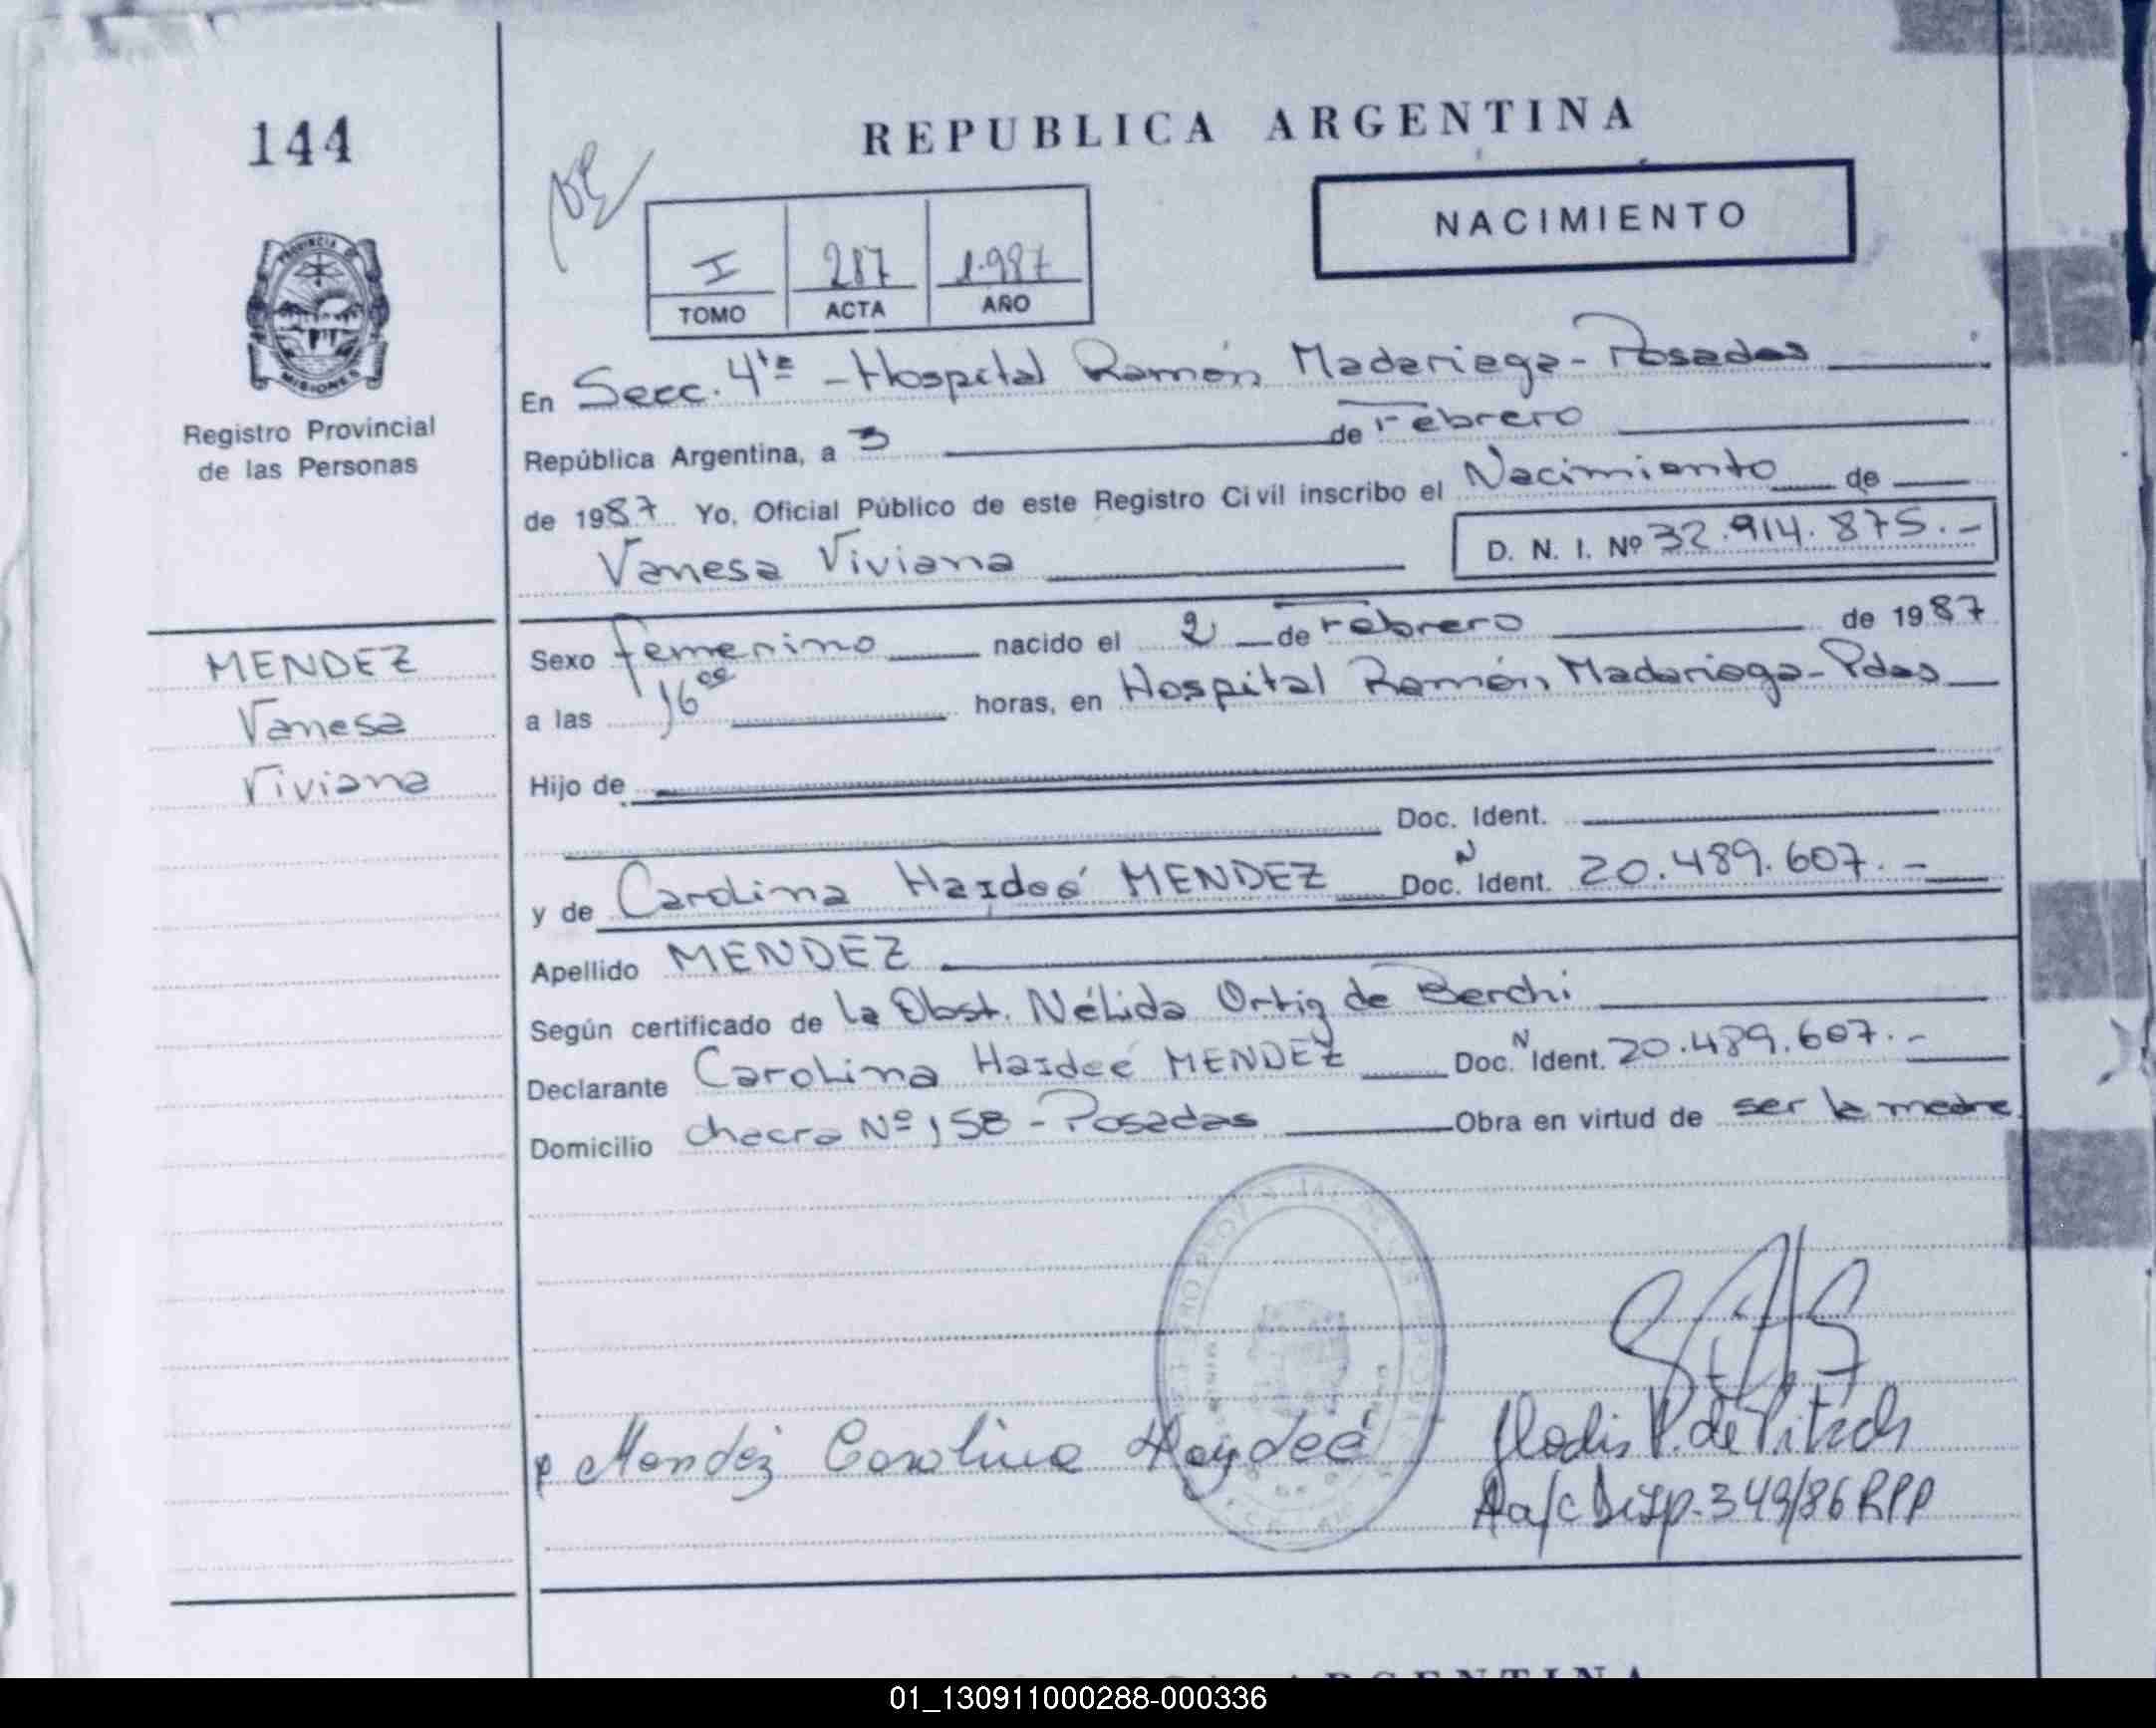 144
REPUBLICA ARGENTINA
NACIMIENTO
I 287 1.987
TOMO ACTA AÑO
PROVINCIA DE
MISIONES
Registro Provincial
de las Personas
En Secc. 4ta - Hospital Ramón Madariaga - Posadas
República Argentina, a 3 de Febrero
de 1987 Yo, Oficial Público de este Registro Civil inscribo el Nacimiento de
Vanesa Viviana D. N. I. Nº 32.914.875.-
MENDEZ
Vanesa
Viviana
Sexo femenino nacido el 2 de Febrero de 1987
a las 16 oo horas, en Hospital Ramón Madariaga - Pdas
Hijo de
Doc. Ident.
y de Carolina Haideé MENDEZ Doc. N Ident. 20.489.607.-
Apellido MENDEZ
Según certificado de la Obst. Nélida Ortiz de Berchi
Declarante Carolina Haideé MENDEZ Doc. N Ident. 20.489.607.-
Domicilio chacra Nº 158 - Posadas Obra en virtud de ser la madre.
Mendez Carolina Haydeé
Aa/c Disp. 349/86 RPP
ARGENTINA
01_130911000288-000336